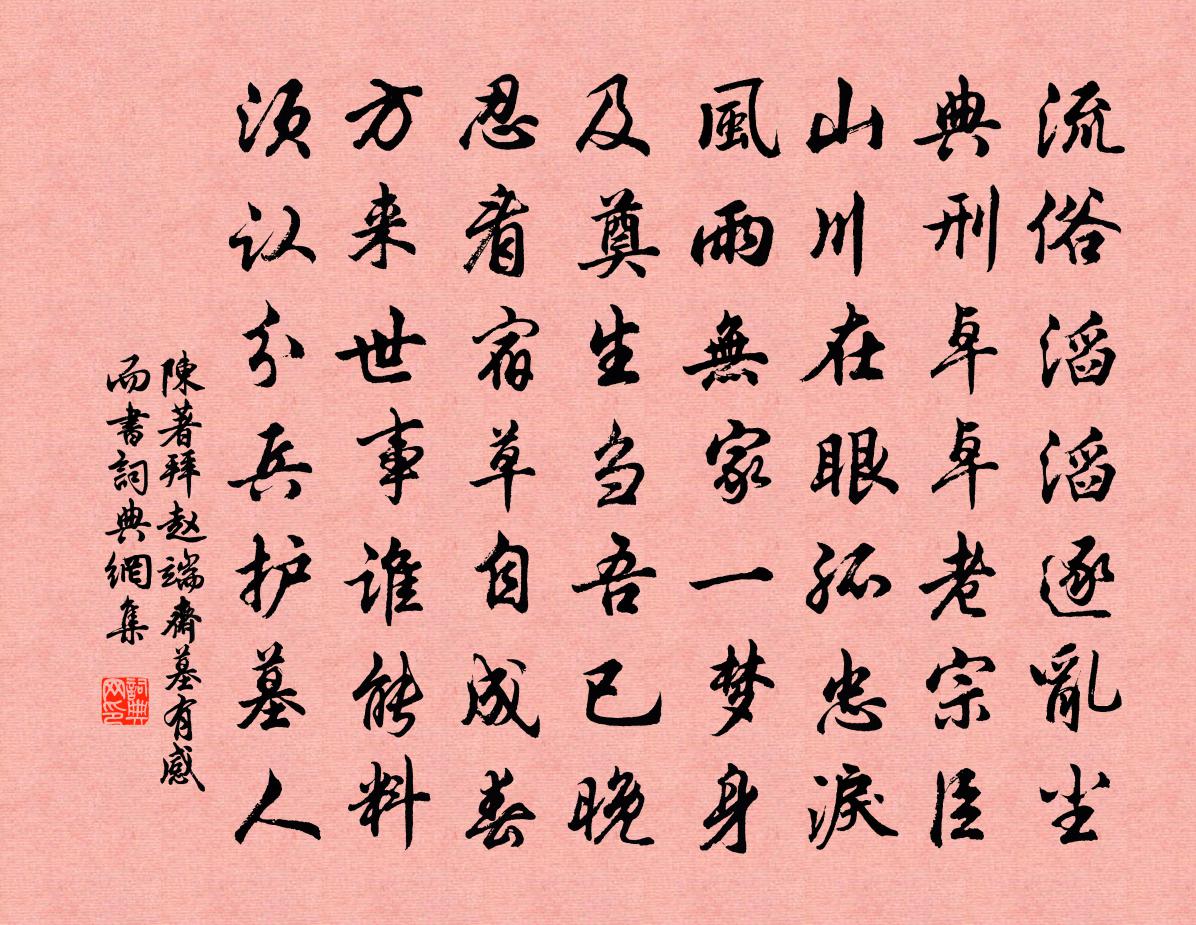 流俗滔滔逐亂尘
典刑卓卓老宗臣
山川在眼孤忠淚
風雨無家一梦身
及奠生芻吾已晚
忍看宿草自成春
方来世事谁能料
须认分兵护墓人
陳著拜赵端齋墓有感
而書詞典網集
詞典网印